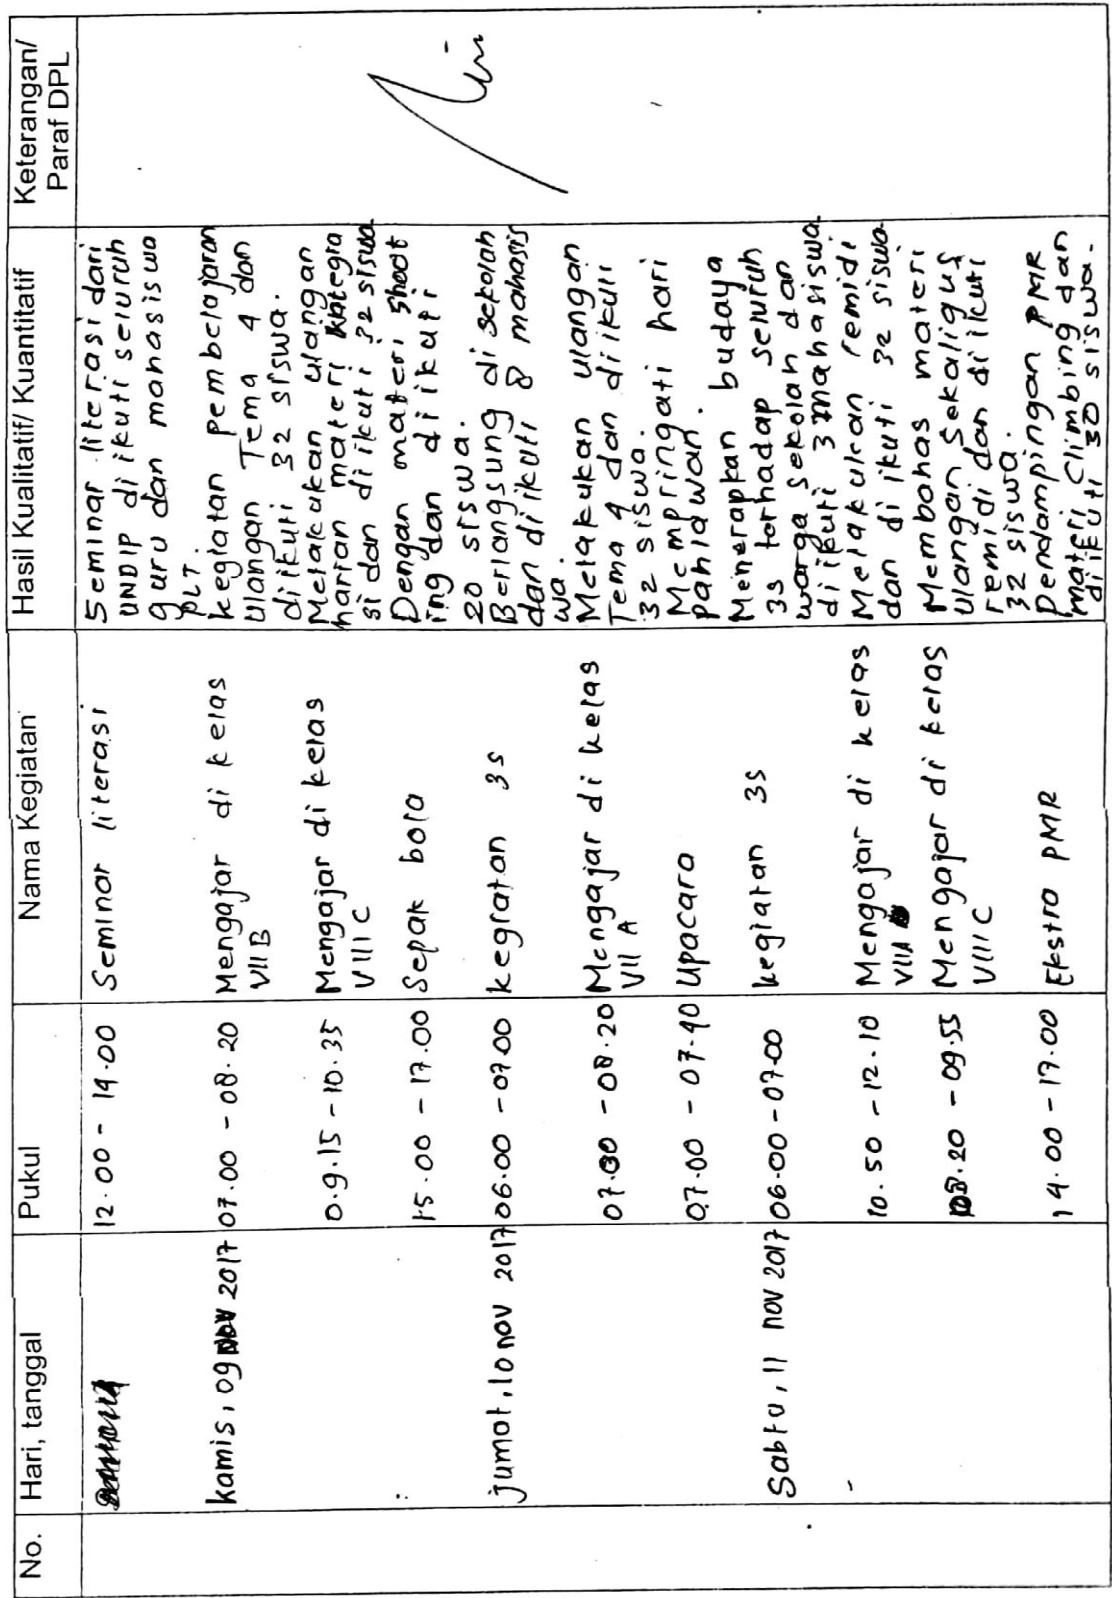 No. Hari, tanggal Pukul Nama Kegiatan Hasil Kualitatif/ Kuantitatif Keterangan/
Paraf DPL
12.00 - 14.00 Seminar literasi
Seminar literasi dari
UNDIP diikuti seluruh
guru dan mahasiswa
PLT.
kamis, 09 NOV 2017 07.00 - 08.20 Mengajar di kelas
VII B
kegiatan pembelajaran
Ulangan Tema 4 dan
diikuti 32 siswa.
0.9.15 - 10.35 Mengajar di kelas
VIII C
Melakukan ulangan
harian materi kategra
si dan diikuti 32 siswa
15.00 - 17.00 Sepak bola
Dengan materi shoot
ing dan diikuti
20 siswa.
jumat, 10 nov 2017 06.00 - 07.00 kegiatan 3s
Berlangsung di sekolah
dan diikuti 8 mahasis
wa.
07.00 - 08.20 Mengajar di kelas
VII A
Melakukan ulangan
Tema 4 dan diikuti
32 siswa.
07.00 - 07.40 Upacara
Mempringati hari
pahlawan.
Sabtu, 11 nov 2017 06.00 - 07.00 kegiatan 3s
Menerapkan budaya
3s terhadap seluruh
warga sekolah dan
diikuti 3 mahasiswa.
10.50 - 12.10 Mengajar di kelas
VIII
Melakukan remidi
dan diikuti 32 siswa
08.20 - 09.55 Mengajar di kelas
VIII C
Membahas materi
Ulangan sekaligus
remidi dan diikuti
32 siswa.
14.00 - 17.00 Ekstra PMR
Pendampingan PMR
materi climbing dan
diikuti 30 siswa.